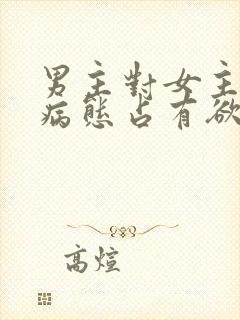 男主對女主
病態占有欲
高煊